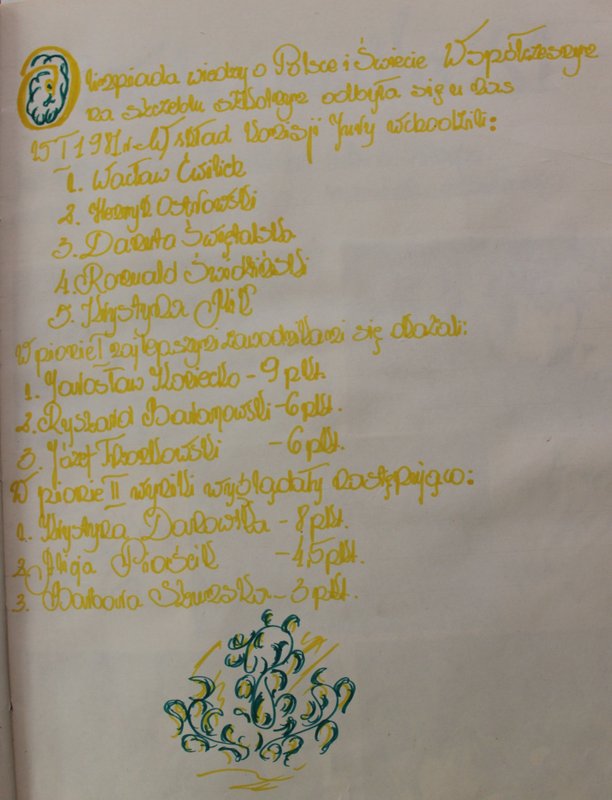 Olimpiada wiedzy o Polsce i Świecie Współczesnym
na szczeblu szkolnym odbyła się u nas
15 I 1981 r. W skład Komisji Jury wchodzili:
1. Wacław Ćwilich
2. Henryk Ostrowski
3. Danuta
4. Romuald
5. Krystyna
W pionie I najlepszymi zawodnikami się okazali:
1. Jarosław - 9 pkt.
2. Ryszard - 6 pkt.
3. Józef - 6 pkt.
W pionie II wyniki wyglądały następująco:
1. Krystyna Darowska - 8 pkt.
2. Alicja Piaścik - 4,5 pkt.
3. Barbara - 3 pkt.